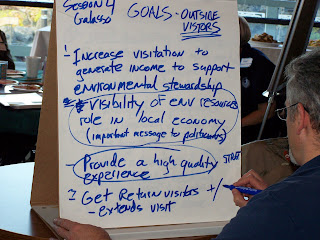 Session 4
Galasso
GOALS - OUTSIDE
VISITORS
- Increase visitation to
generate income to support
environmental stewardship
* Visibility of env resources
role in local economy
(important message to politicians)
- Provide a high quality
experience
Get Return visitors +/
- Extends visit